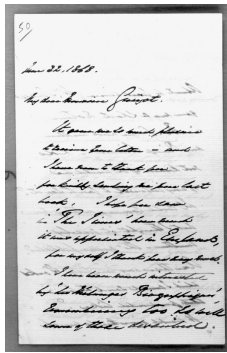 50
June 22. 1868.
My dear Monsieur Guizot.
It gave me so much pleasure
to receive your letter - and
I have now to thank you
for kindly sending me your last
book. I hope you saw
in 'The Times' how much
it was appreciated in England,
for myself I thank you very much.
I have been much interested
by 'les Mélanges Biographiques'
Remembering too so well
some of those described.